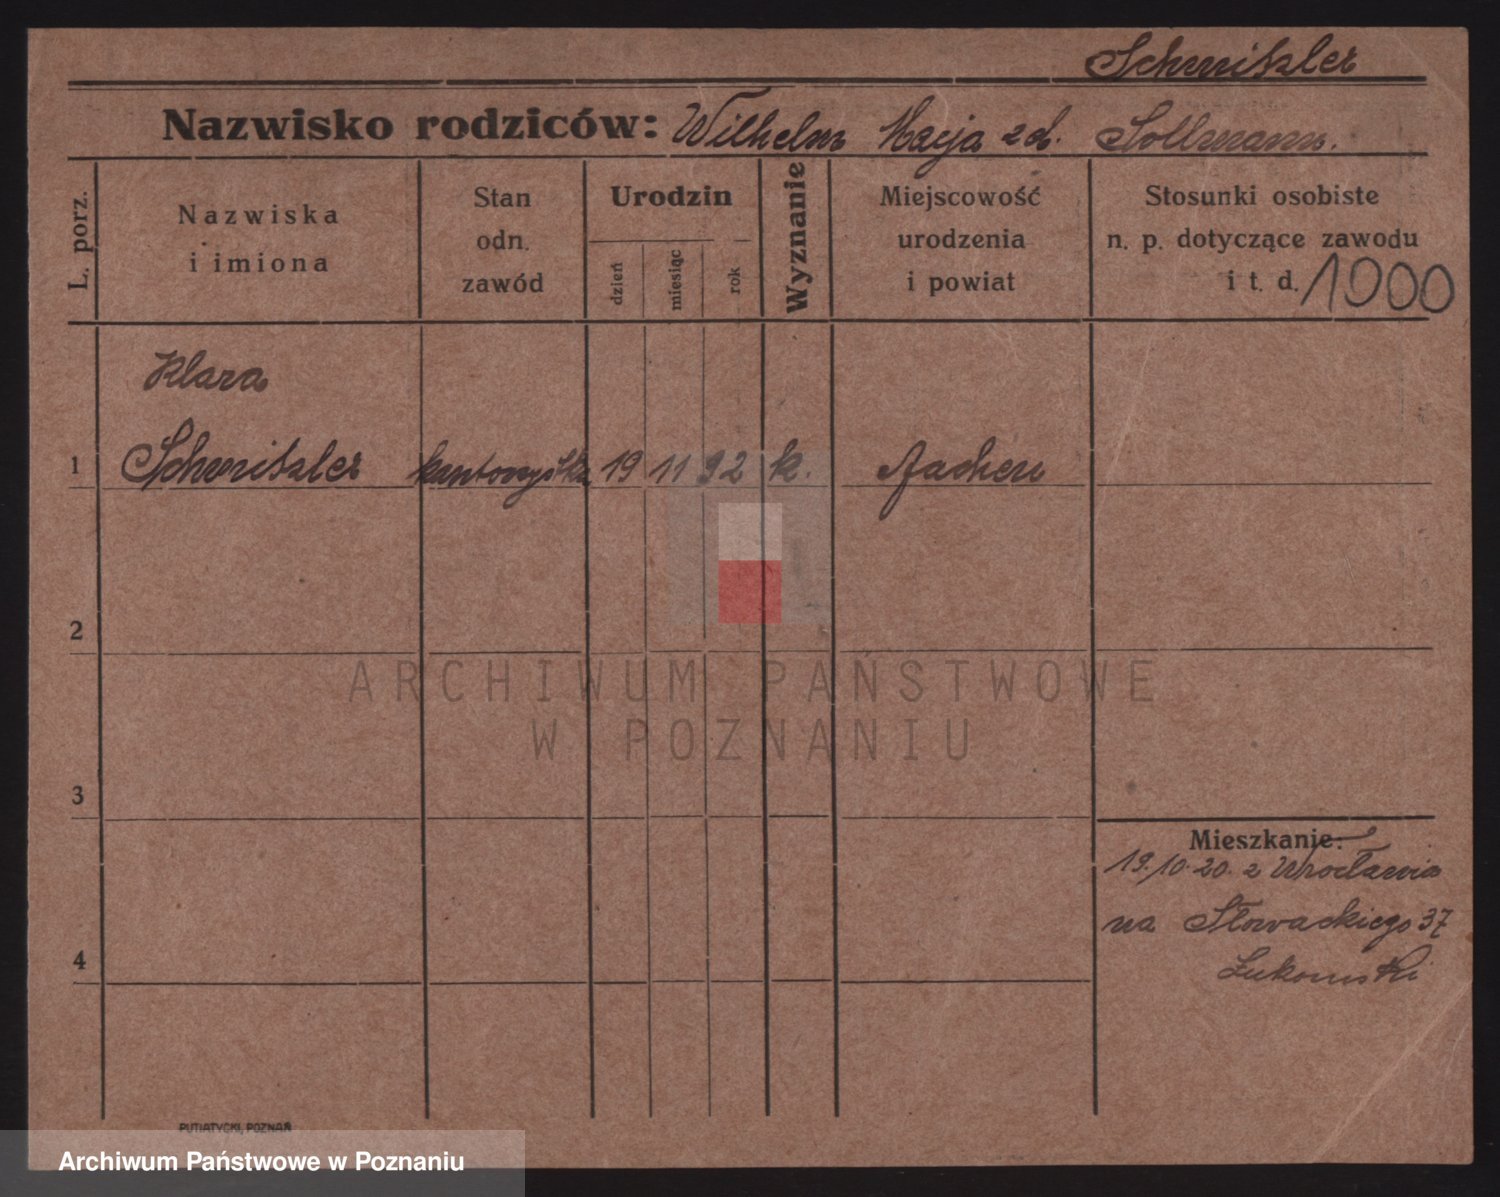 Schmitzler
Nazwisko rodziców: Wilhelm Marja zd. Sollmann.
L. porz.
Nazwiska
i imiona
Stan
odn.
zawód
Urodzin
dzień
miesiąc
rok
Wyznanie
Miejscowość
urodzenia
i powiat
Stosunki osobiste
n. p. dotyczące zawodu
i t. d. 1900
Klara
1 Schmitzler kantorzystka 19 11 92 k. Aachen
2
3
4
Mieszkanie:
19.10.20. z Wrocławia
na Słowackiego 37
Łukomski
PUTIATYCKI, POZNAŃ
ARCHIWUM PAŃSTWOWE
W POZNANIU
Archiwum Państwowe w Poznaniu